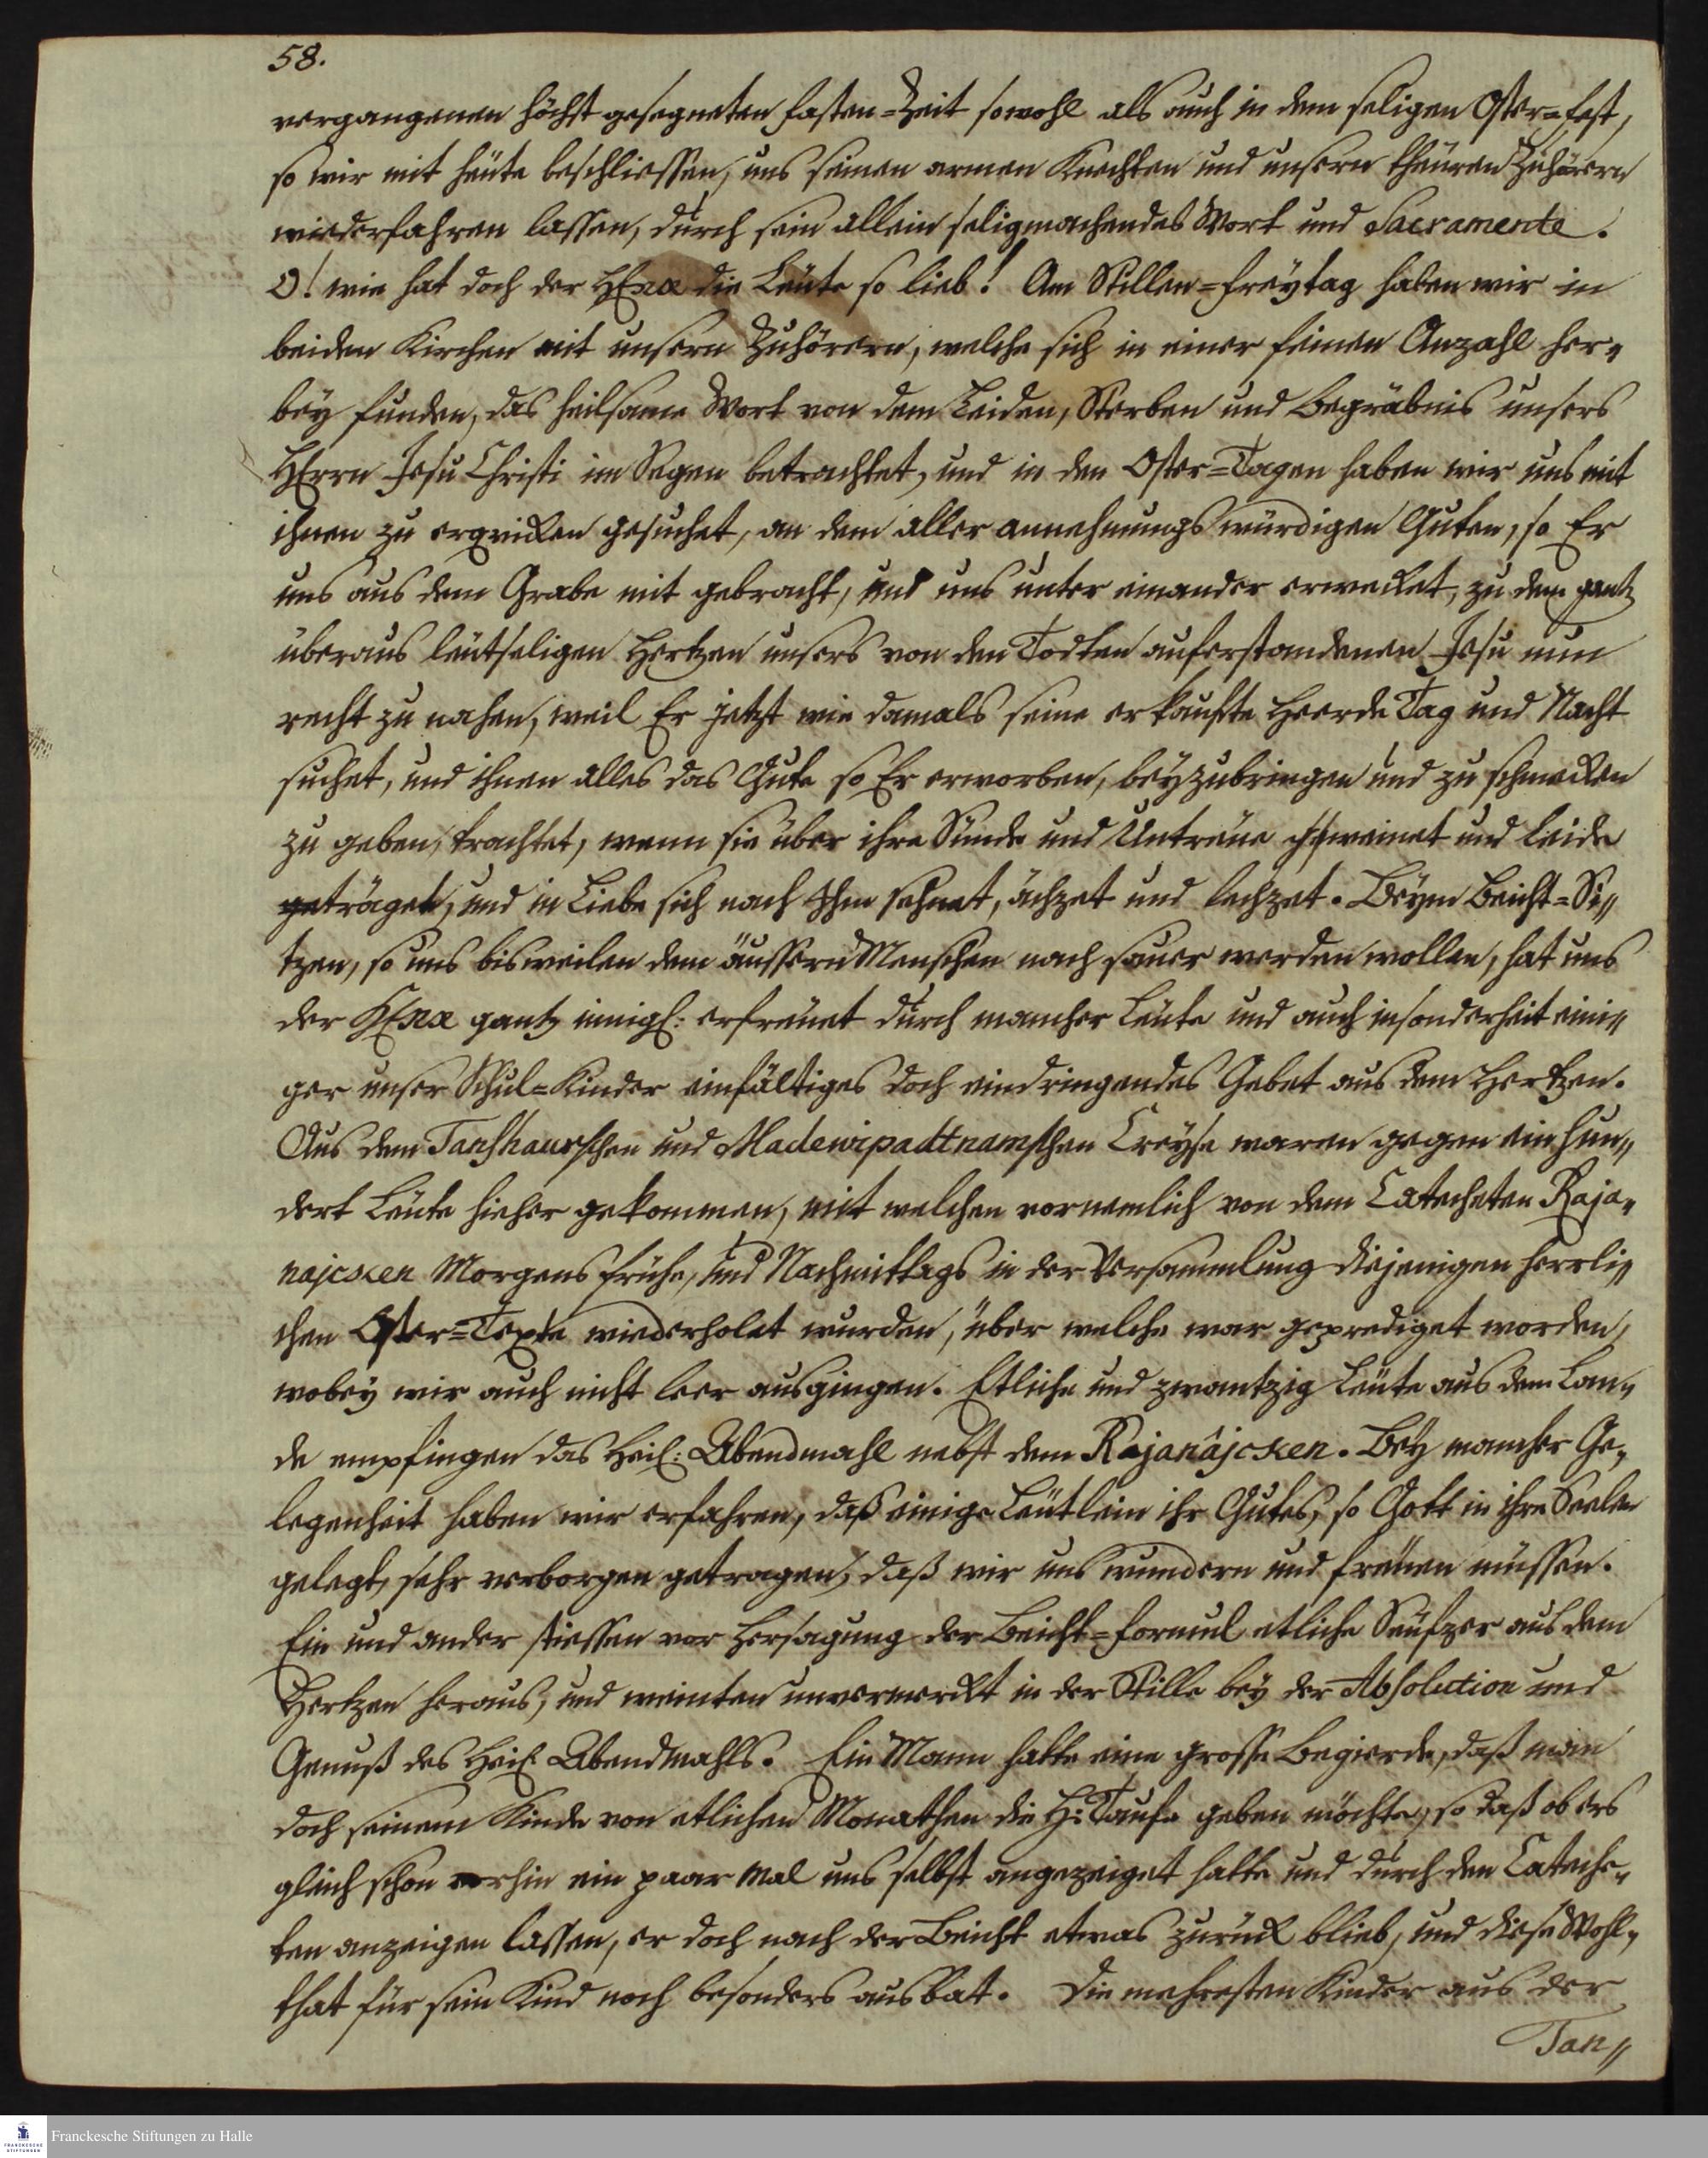 58.
vergangenen höchst gesegneten Fasten=Zeit sowohl als auch in dem seligen Oster=Fest,
so wir mit heüte beschliessen, uns seinen armen Knechten und unsern theüren Zuhörern
wiederfahren lassen, durch sein allein seligmachendes Wort und Sacramente.
O! wie hat doch der HErr die Leüte so lieb! Am Stillen=Freÿtag haben wir in
beiden Kirchen mit unsern Zuhörern, welche sich in einer feinen Anzahl her„
beÿ funden, das heilsame Wort von dem Leiden, Sterben und Begräbnis unsers
HErrn Jesu Christi im Segen betrachtet, und in den Oster=Tagen haben wir uns mit
ihnen zu erqvicken gesuchet, an dem aller annehmungswürdigen Guten, so Er
uns aus dem Grabe mit gebracht, und uns unter einander erwecket, zu dem gantz
überaus leütseligen Hertzen unsers von den Todten auferstandenen Jesu nun
recht zu nahen, weil Er jetzt wie damals seine erkaufte Heerde Tag und Nacht
suchet, und ihnen alles das Gute so Er erworben, beÿzubringen und zu schmecken
zu geben, trachtet, wenn sie über ihre Sünde und Untreüe weinet und leide
träget, und in Liebe sich nach Ihm sehnet, ächzet und lechzet. Beÿm Beicht=Si„
tzen, so uns bisweilen dem äussern Menschen nach sauer werden wollen, hat uns
der HErr gantz innigl: erfreüet durch mancher Leüte und auch insonderheit eini„
ger unser Schul=Kinder einfältiges doch eindringendes Gebet aus dem Hertzen.
Aus dem Tanshaurschen und Madewipadtnamschen Creÿse waren gegen ein hun„
dert Leüte hieher gekommen, mit welchen vornemlich von dem Catecheten Raja„
najcken Morgens frühe, und Nachmittags in der Versammlung diejenigen herrli„
chen Oster=Texte wiederholet wurden, über welche war geprediget worden,
wobeÿ wir auch nicht leer ausgingen. Etliche und zwantzig Leüte aus dem Lan„
de empfingen das Heil: Abendmahl nebst dem Rajanâjcken. Beÿ mancher Ge„
legenheit haben wir erfahren, daß einige Leütlein ihr Gutes, so Gott in ihre Seele
gelegt, sehr verborgen getragen, daß wir uns wundern und freüen müssen.
Ein und ander stiessen vor Hersagung der Beicht=Formul etliche Seüfzer aus dem
Hertzen heraus, und weinten unvermerckt in der Stille beÿ der Absolution und
Genuß des Heil. Abendmahls. Ein Mann hatte eine grosse Begierde, daß man
doch seinem Kinde von etlichen Monathen die H: Taufe geben möchte, so daß ob ers
gleich schon vorhin ein paar mal uns selbst angezeiget hatte und durch den Cateche„
ten anzeigen lassen, er doch nach der Beicht etwas zurück blieb, und diese Wohl„
that für sein Kind noch besonders ausbat. Die mehresten Kinder aus der
Tan„
Franckesche Stiftungen zu Halle